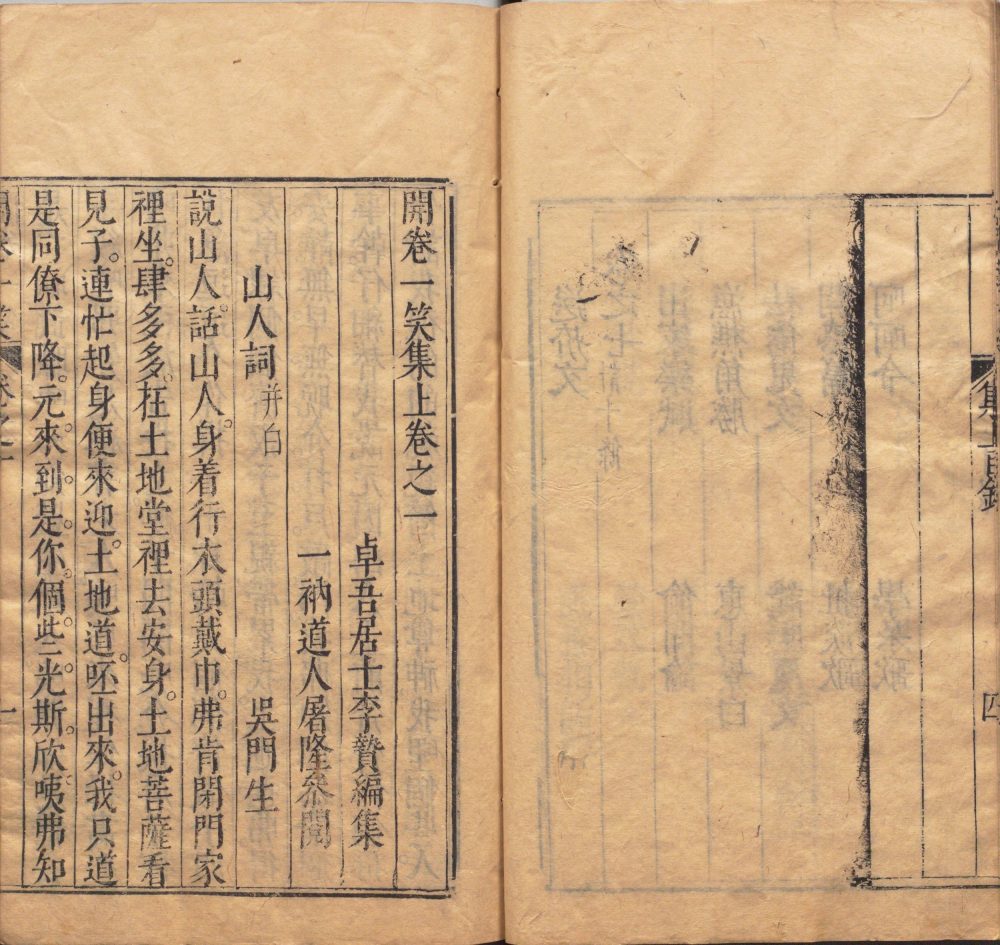 集上目錄
四
開卷一笑集上卷之一
卓吾居士李贄編集
一衲道人屠隆參閱
山人詞 併白
吳門生
說山人。話山人。身着行衣頭戴巾。弗肯閑門家
裡坐。肆多多。在土地堂裡去安身。土地菩薩看
見子。連忙起身便來迎。土地道。呸出來。我只道
是同僚下降。元來。到是。你個。些。光斯。欣咦。弗知
開卷一笑
卷之一
一